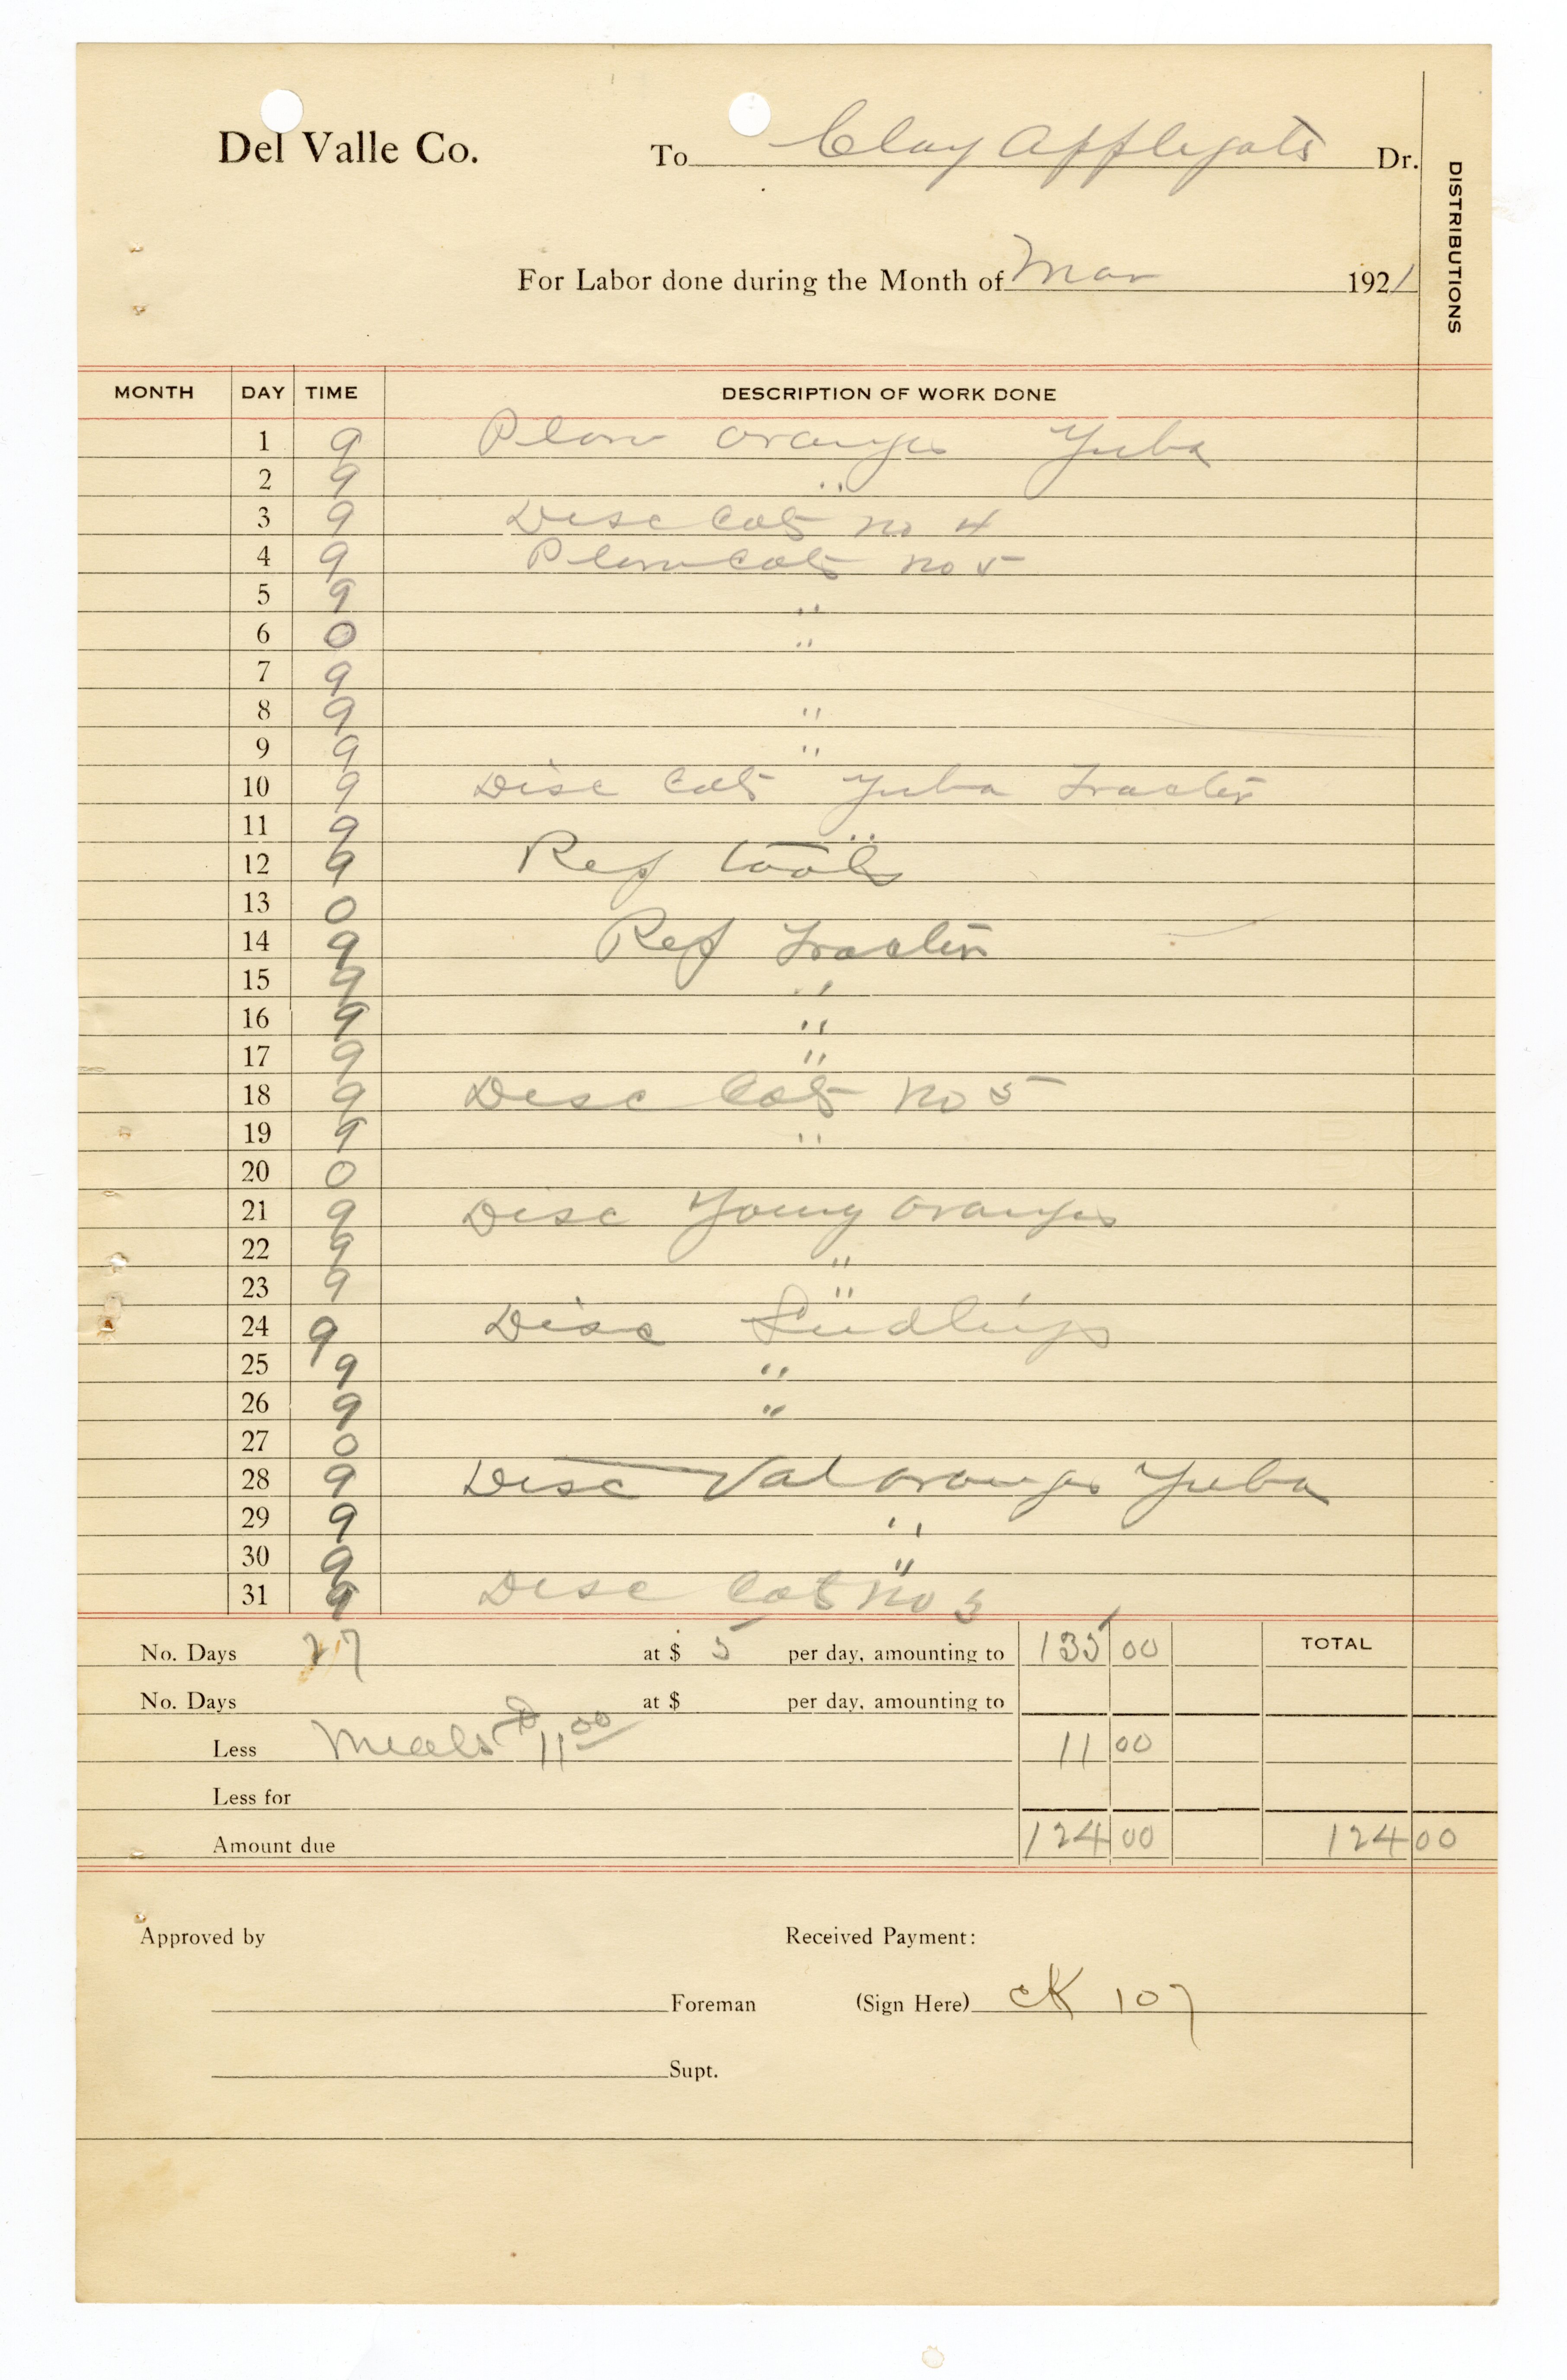 Del Valle Co. To Clay Applegate Dr.
DISTRIBUTIONS
For Labor done during the Month of Mar 1921
MONTH DAY TIME DESCRIPTION OF WORK DONE
1 9 Plow oranges Yuba
2 9 "
3 9 Disc Cat no 4
4 9 Plow Cat no 5
5 9 "
6 0 "
7 9
8 9 "
9 9 "
10 9 Disc Cat Yuba Tractor
11 9 "
12 9 Rep tools
13 0
14 9 Rep Tractor
15 9 "
16 9 "
17 9 "
18 9 Disc Cat no 5
19 9 "
20 0
21 9 Disc Young oranges
22 9 "
23 9 "
24 9 Disc Seedlings
25 9 "
26 9 "
27 0
28 9 Disc Val oranges Yuba
29 9 "
30 9 "
31 9 Disc Cat no 3
No. Days 27 at $ 5 per day, amounting to 135 00 TOTAL
No. Days at $ per day, amounting to
Less Meals $11 00 11 00
Less for
Amount due 124 00 124 00
Approved by Received Payment:
Foreman (Sign Here) CK 107
Supt.